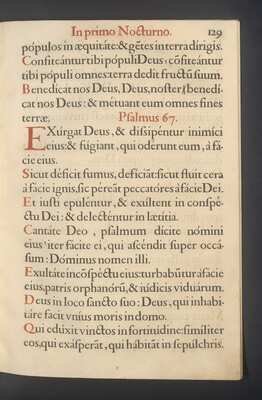 In primo Nocturno. 129
pópulos in æquitáte: & gẽtes in terra dírigis.
Confiteántur tibi pópuli Deus: cõfiteántur
tibi pópuli omnes: terra dedit fructũ suum.
Benedícat nos Deus, Deus, noster, benedí-
cat nos Deus: & métuant eum omnes fines
terræ. Psalmus 67.
EXúrgat Deus, & dissipéntur inimíci
eius: & fúgiant, qui odérunt eum, á fá-
cie eius.
Sicut déficit fumus, defíciãt: sicut fluit cera
á fácie ignis, sic péreãt peccatóres á fácie Dei.
Et iusti epuléntur, & exúltent in conspé-
ctu Dei: & delecténtur in lætítia.
Cantáte Deo, psalmum dícite nómini
eius: iter fácite ei, qui ascéndit super occá-
sum: Dóminus nomen illi.
Exultáte in cõspéctu eius: turbabũtur á fácie
eius, patris orphanórũ, & iúdicis viduárum.
Deus in loco sancto suo: Deus, qui inhabi-
táre facit vníus moris in domo.
Qui edúxit vinctos in fortitúdine: simíliter
eos, qui exásperãt, qui hábitãt in sepúlchris.